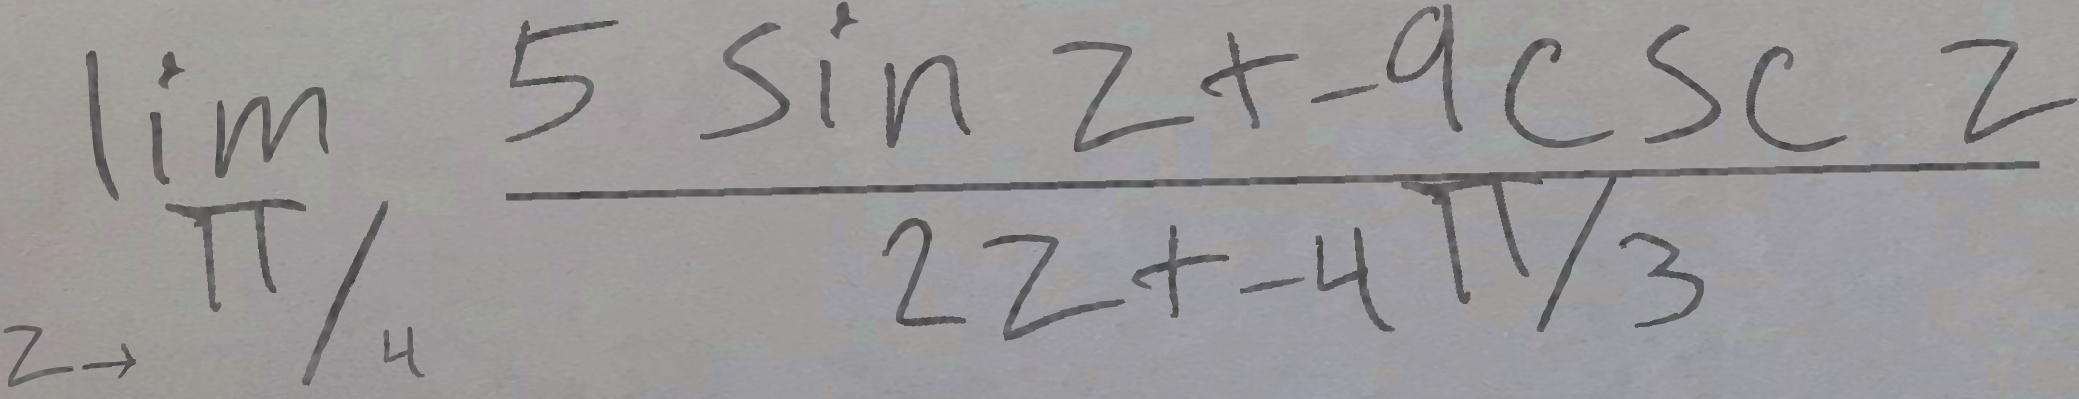 lim z→π/4 (5 sin z + -9 csc z)/(2z + -4π/3)